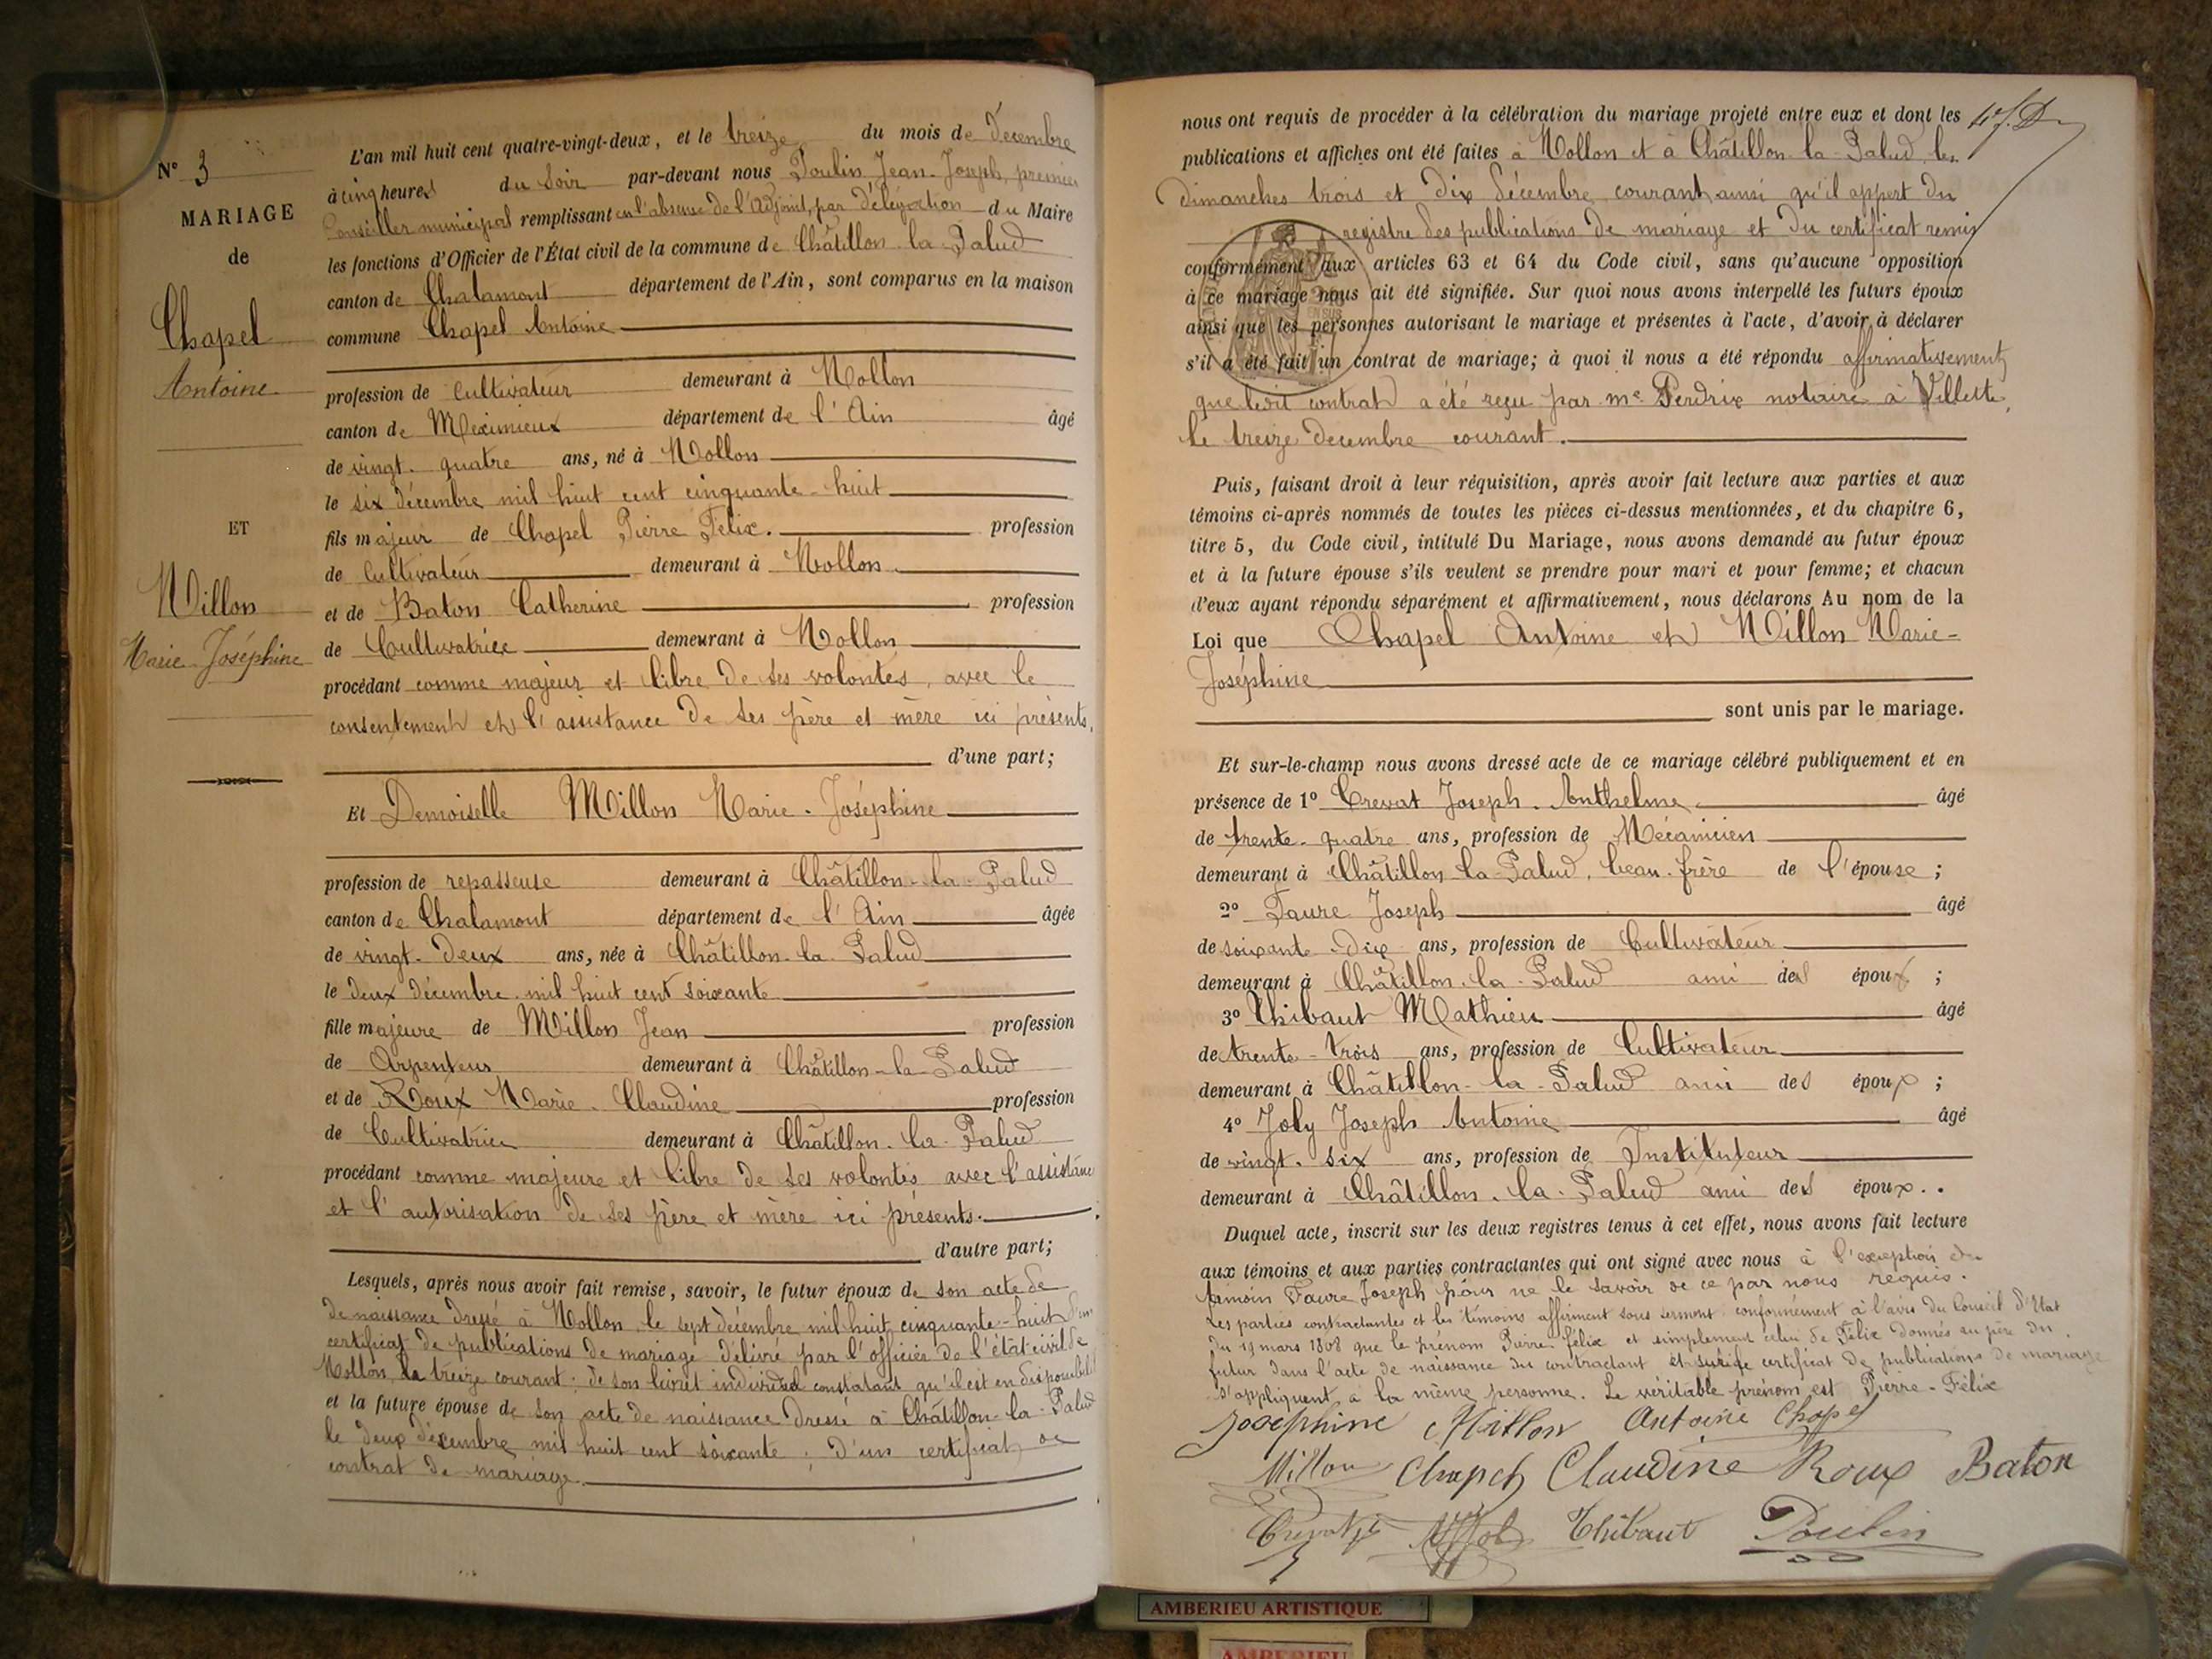 N° 3
MARIAGE
de
Chapel
Antoine
ET
Millon
Marie-Joséphine
L'an mil huit cent quatre-vingt-deux, et le treize du mois de Décembre
à cinq heures du Soir par-devant nous Poulin Jean-Joseph, premier
Conseiller municipal remplissant en l'absence de l'Adjoint, par délégation du Maire
les fonctions d'Officier de l'État civil de la commune de Châtillon-la-Palud
canton de Chalamont département de l'Ain, sont comparus en la maison
commune Chapel Antoine
profession de Cultivateur demeurant à Mollon
canton de Méximieux département de l'Ain âgé
de vingt-quatre ans, né à Mollon
le six décembre mil huit cent cinquante-huit
fils majeur de Chapel Pierre Félix. profession
de Cultivateur demeurant à Mollon
et de Baton Catherine profession
de Cultivatrice demeurant à Mollon
procédant comme majeur et libre de ses volontés, avec le
consentement et l'assistance de ses père et mère ici présents,
d'une part;
Et Demoiselle Millon Marie-Joséphine
profession de repasseuse demeurant à Châtillon-la-Palud
canton de Chalamont département de l'Ain âgée
de vingt-deux ans, née à Châtillon-la-Palud
le deux décembre mil huit cent soixante
fille majeure de Millon Jean profession
de Arpenteur demeurant à Châtillon-la-Palud
et de Roux Marie-Claudine profession
de Cultivatrice demeurant à Châtillon-la-Palud
procédant comme majeure et libre de ses volontés avec l'assistance
et l'autorisation de ses père et mère ici présents.
d'autre part;
Lesquels, après nous avoir fait remise, savoir, le futur époux de son acte de
de naissance dressé à Mollon le sept décembre mil huit cinquante-huit
certificat de publications de mariage délivré par l'officier de l'état civil de
Mollon le treize courant; de son livret individuel constatant qu'il est en disponibilité
et la future épouse de son acte de naissance dressé à Châtillon-la-Palud
le deux décembre mil huit cent soixante; d'un certificat de
contrat de mariage.
nous ont requis de procéder à la célébration du mariage projeté entre eux et dont les
publications et affiches ont été faites à Mollon et à Châtillon-la-Palud, les
dimanches trois et dix décembre courant, ainsi qu'il appert du
registre des publications de mariage et du certificat remis
conformément aux articles 63 et 64 du Code civil, sans qu'aucune opposition
à ce mariage nous ait été signifiée. Sur quoi nous avons interpellé les futurs époux
ainsi que les personnes autorisant le mariage et présentes à l'acte, d'avoir à déclarer
s'il a été fait un contrat de mariage; à quoi il nous a été répondu affirmativement
que ledit contrat a été reçu par me Perdrix notaire à Villette,
le treize décembre courant.
Puis, faisant droit à leur réquisition, après avoir fait lecture aux parties et aux
témoins ci-après nommés de toutes les pièces ci-dessus mentionnées, et du chapitre 6,
titre 5, du Code civil, intitulé Du Mariage, nous avons demandé au futur époux
et à la future épouse s'ils veulent se prendre pour mari et pour femme; et chacun
d'eux ayant répondu séparément et affirmativement, nous déclarons Au nom de la
Loi que Chapel Antoine et Millon Marie-
Joséphine
sont unis par le mariage.
Et sur-le-champ nous avons dressé acte de ce mariage célébré publiquement et en
présence de 1° Crevat Joseph-Anthelme âgé
de trente-quatre ans, profession de Mécanicien
demeurant à Châtillon-la-Palud, beau-frère de l'épouse;
2° Faure Joseph âgé
de soixante-dix ans, profession de Cultivateur
demeurant à Châtillon-la-Palud ami des époux;
3° Thibaut Mathieu âgé
de trente-trois ans, profession de Cultivateur
demeurant à Châtillon-la-Palud ami des époux;
4° Joly Joseph Antoine âgé
de vingt-six ans, profession de Instituteur
demeurant à Châtillon-la-Palud ami des époux..
Duquel acte, inscrit sur les deux registres tenus à cet effet, nous avons fait lecture
aux témoins et aux parties contractantes qui ont signé avec nous à l'exception du
témoin Faure Joseph pour ne le savoir de ce par nous requis.
Les parties contractantes et les témoins affirment sous serment conformément à l'avis du Conseil d'Etat
du 19 mars 1808 que le prénom Pierre Félix et simplement celui de Félix donnés au père du
futur dans l'acte de naissance du contractant et sur le certificat de publications de mariage
s'appliquent à la même personne. Le véritable prénom est Pierre-Félix
Josephine Millon Antoine Chapel
Millon Chapel Claudine Roux Baton
Crevat Joly Thibaut Poulin
AMBERIEU ARTISTIQUE
AMBERIEU